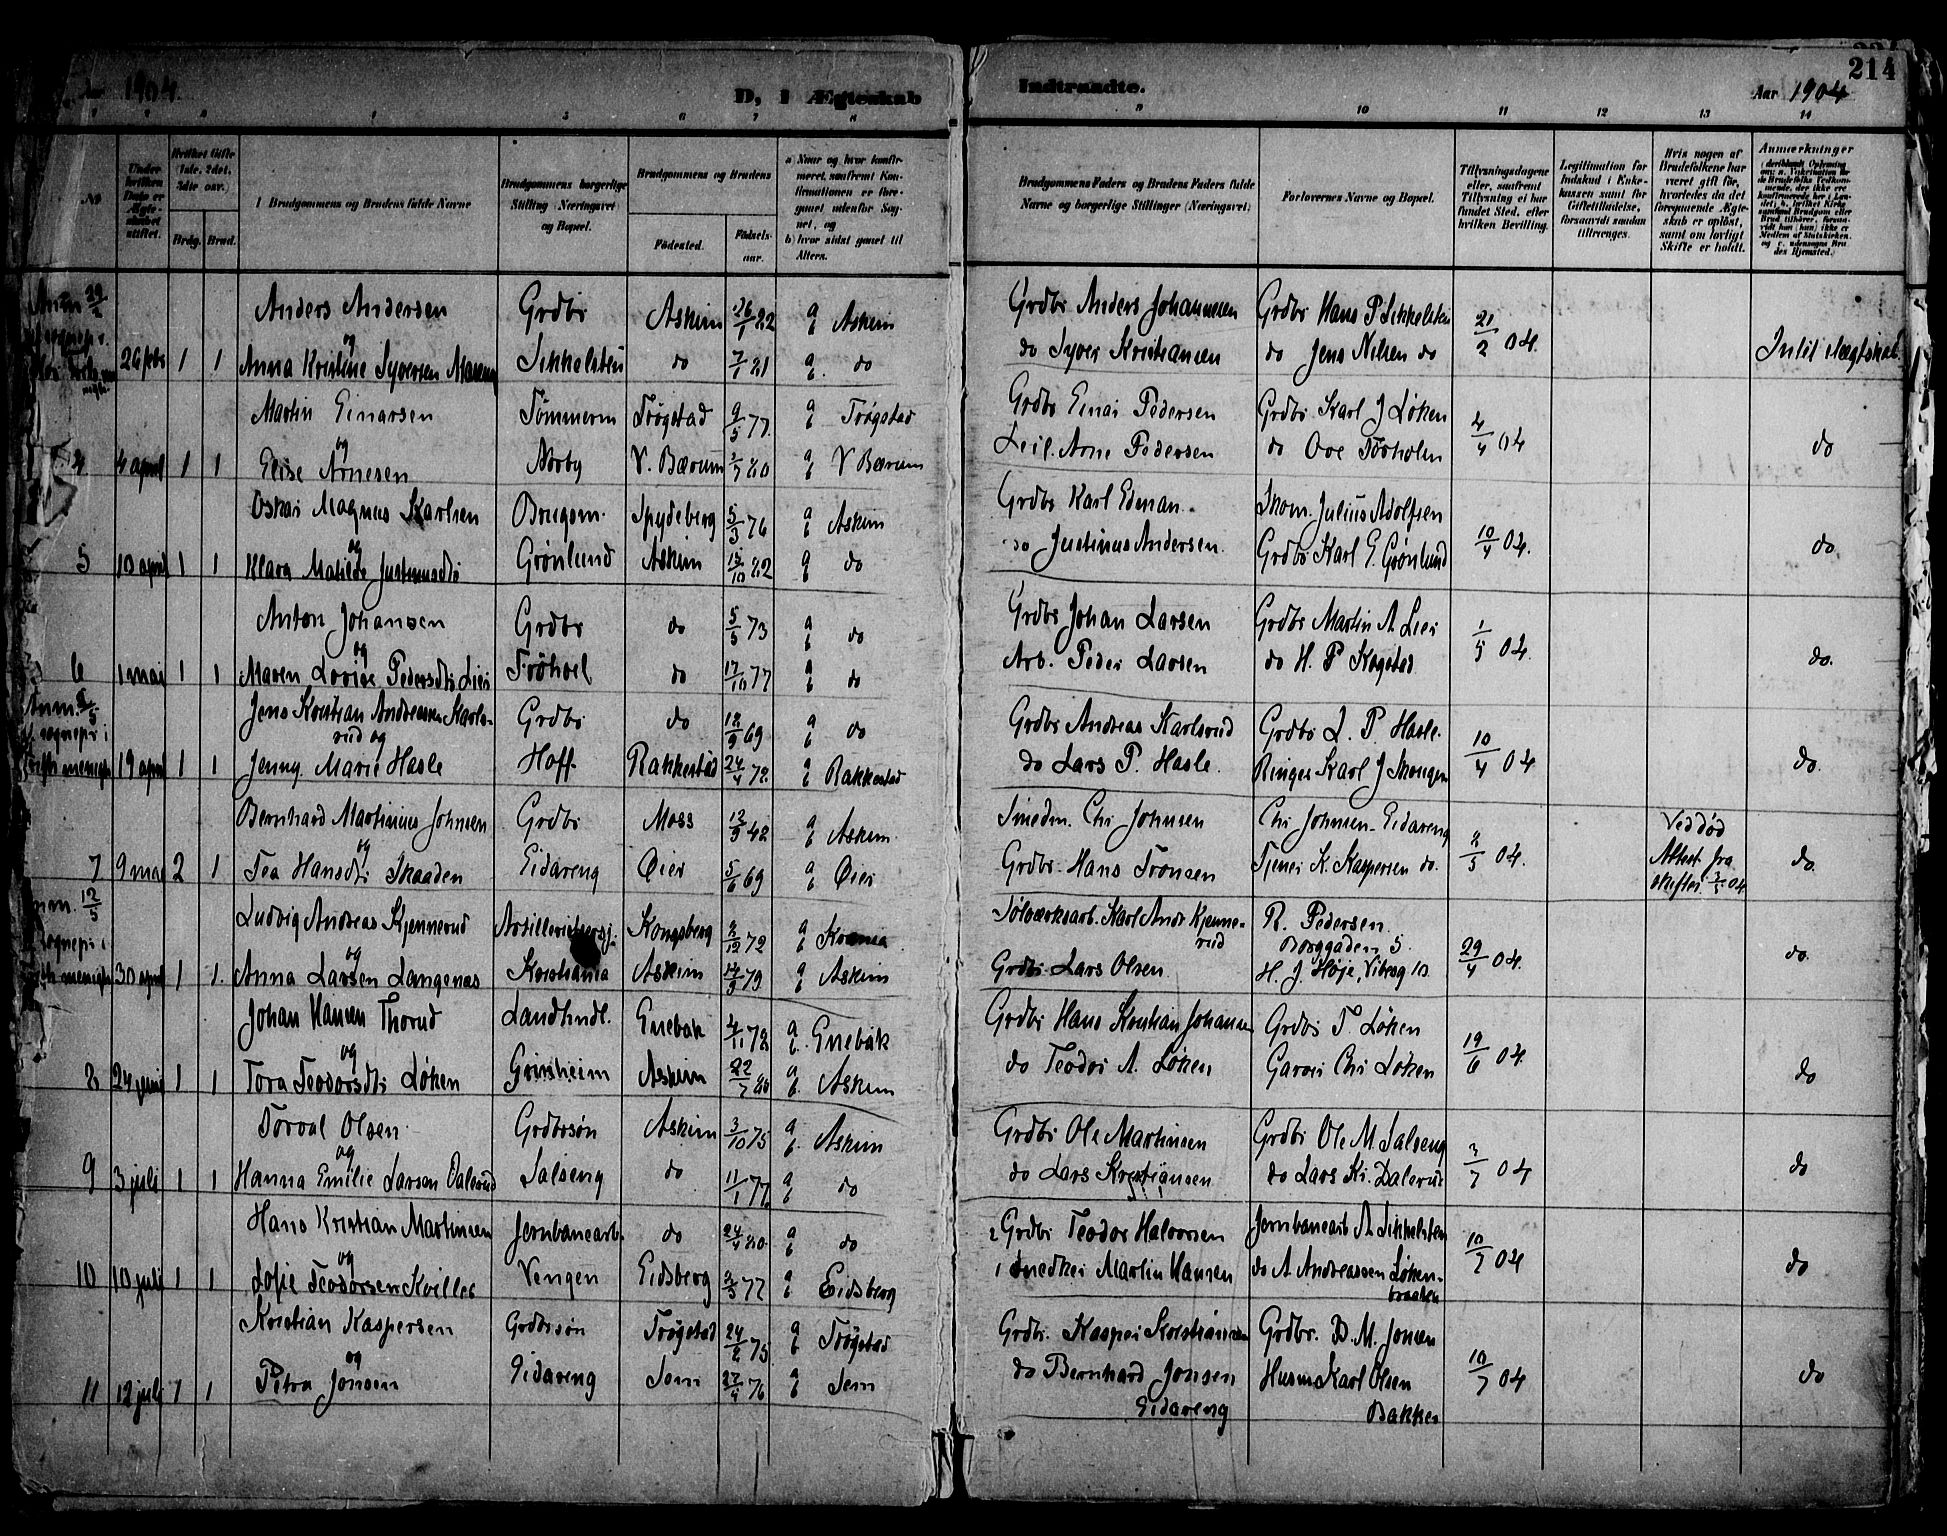 Aar 1904.
D, I Ægteskab
Indtraadte.
Aar 1904
214
No
Under hvilken Dato er Ægteskabet stiftet.
Hvilket Gifte (1ste, 2det, 3die osv.)
Brdg. Brud.
Brudgommens og Brudens fulde Navne
Brudgommens borgerlige Stilling (Næringsvei) og Bopæl.
Brudgommens og Brudens
Fødested.
Fødselsaar.
a) Naar og hvor konfirmeret, samfremt Konfirmationen er foregaaet udenfor Sognet, og
b) hvor sidst gaaet til Alters.
Brudgommens Faders og Brudens Faders fulde Navne og borgerlige Stillinger (Næringsvei)
Forlovernes Navne og Bopæl.
Tillysningsdagene eller, samfremt Tillysning ei har fundet Sted, efter hvilken Bevilling.
Legitimation for Indskud i Enkekassen samt for Giftetilladelse, forsaavidt saadan tiltrænges.
Hvis nogen af Brudefolkene har været gift før, hvorledes da det foregaaende Ægteskab er opløst, samt om lovligt Skifte er holdt.
Anmærkninger
Anders Andersen Grdbr Askim 26/1 82 a Askim Grdbr Anders Johannesen Grdbr Hans P Sikkelsten 21/2 04.
og
26 febr 1 1 Anna Kristine Syversen Sikkelsten do 7/1 81 a b. do do Syver Kristiansen do Jens Nilsen do Intet slegtskab
Martin Einarsen Tømmerm Trøgstad 9/5 77 a Trøgstad Grdbr Einar Pedersen Grdbr Karl J Løken 4/4 04
og
4 4 april 1 1 Elise Arnesen Norby V. Bærum 80 a b V Bærum Leil. Arne Pedersen do Ove Torholen do
Oskar Magnus Karlsen Brugsm. Spydeberg 5/3 76 a b Askim Grdbr Karl Edman. Skom. Julius Adolfsen 10/4 04.
og
5 10 april 1 1 Klara Matilde Justinusdtr Grønlund Askim 82 a b do do Justinus Andersen. Grdbr Karl E. Grønlund do
Anton Johansen Grdbr do 5/5 73 a b do Grdbr Johan Larsen Grdbr Martin A Lier 1/5 04.
og
6 1 mai 1 1 Maren Lovise Pedersdtr Lier Trøhoel do 17/10 77 a b do Arb. Peder Larsen do H. P Kogstad do.
Jens Kristian Andreassen Karlsrud og Grdbr do 18/9 69 a b do Grdbr Andreas Karlsrud Grdbr L. P Hasle. 10/4 04
19 april 1 1 Jenny Marie Hasle Hoff Rakkestad 24/4 72 a b Rakkestad do Lars P. Hasle. Ringer Karl J Skougen do.
Bernhard Martinius Johnsen Grdbr Moss 12/9 48 a b Askim. Smedm. Chr Johnsen Chr Johnsen Eidareng 04. Veddød
og
7 9 mai 2 1 Tea Hansdtr Skaaden Eidareng Øier 5/6 69 a b Øier Grdbr. Hans Tronsen Tjener K. Kaspersen do. Attest fra skifter. 04 do.
Ludvig Andreas Kjennerud Kongsberg 72 a b Sølvverksarb. Karl Andr Kjennerud R. Pedersen Borggaden 5. 29/4 04.
og
30 april 1 1. Anna Larsen Langenæs Kristiania Askim 79 a b Askim Grdbr Lars Olsen H. J. Høje, Vibesg 10 do.
Johan Hansen Thorud Landhndl. Enebak 78 a b. Enebak Grdbr Hans Kristian Johansen Grdbr T. Løken 19/6 04
og
8 24 juni 1 1 Tora Teodorsdtr Løken Grinsheim Askim 22/7 80 a b. Askim do Teodor A. Løken Garver Chr Løken do
Torval Olsen Grdbrsøn Askim 3/10 75 a b. Askim Grdbr Ole Martinsen Grdbr Ole M. Salseng 3/7 04
og
9 3 juli 1 1 Hanna Emilie Larsen Dalerud Salseng do 11/1 77 a b do do Lars Kristiansen do Lars Kr. Dalerud do
Hans Kristian Martinsen Jernbanearb. do 24/4 80 a b do 2 Grdbr Teodor Halvorsen Jernbanearb A Sikkelsten 10/7 04
og
10 10 juli 1 1 Sofie Teodorsen Kviller Vengen Eidsberg 77 a b Eidsberg 1 Smedker Martin Hansen do A Andreassen Løkenbraaten do
Kristian Kaspersen Grdbrsøn Trøgstad 24/2 75 a b Trøgstad Grdbr. Kasper Kristiansen Grdbr. B. M. Jonsen 10/7 04
og
11 12 juli 1 1 Petra Jonsen Eidareng Sem 76 a b Sem do Bernhard Jonsen Eidareng Husm Karl Olsen Bakker do